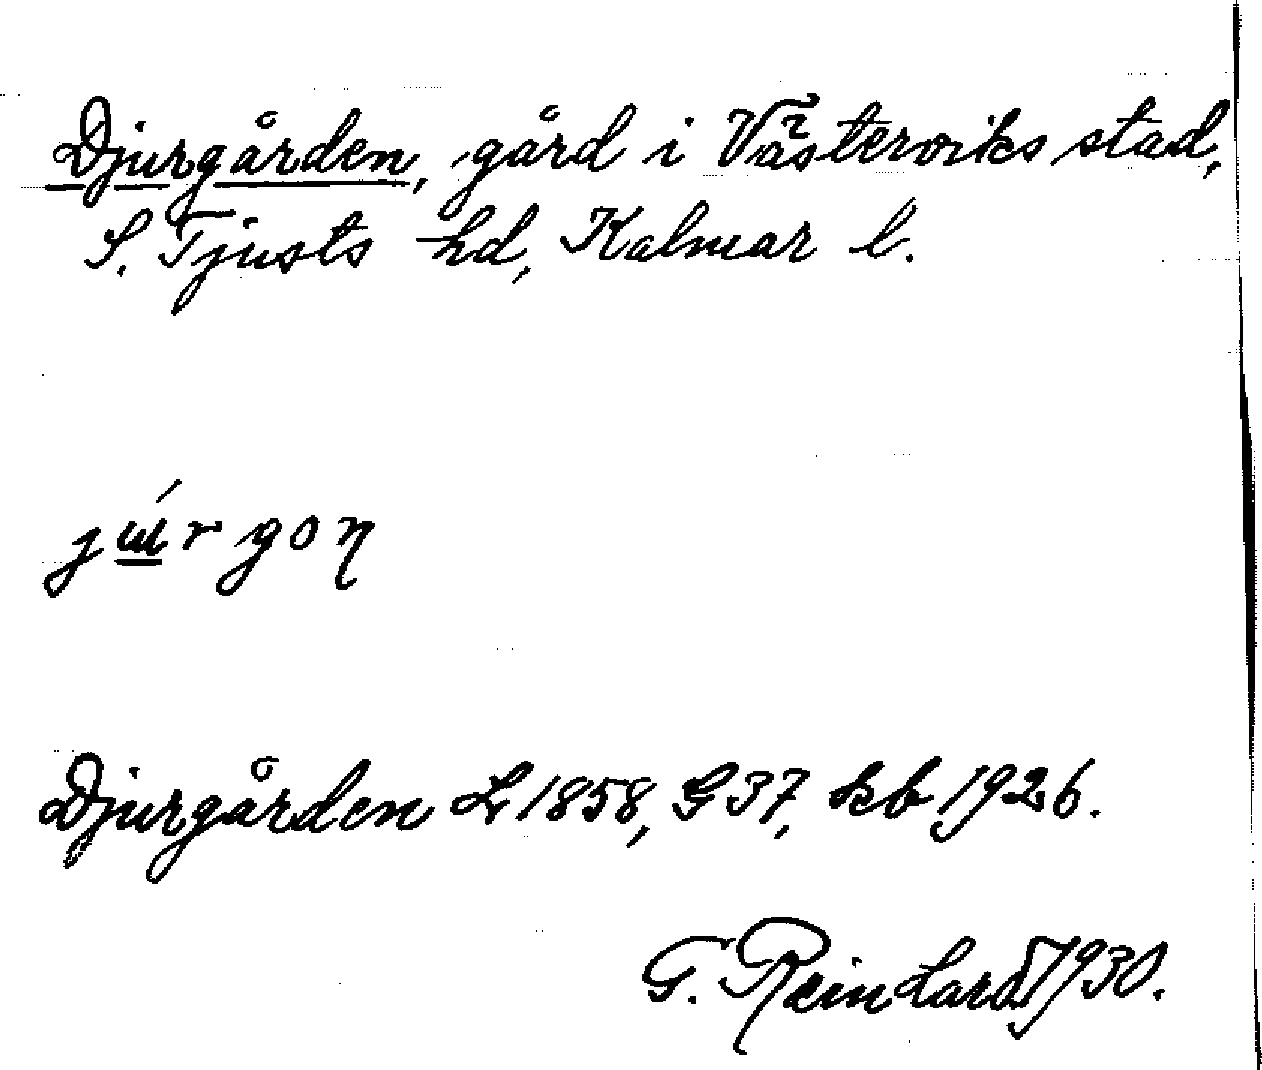 Djurgården, gård i Västerviks stad,
S. Tjusts hd, Kalmar l.
júrgoꞃ
Djurgården L 1858, G 37, kb 1926.
G. Reinhard 1930.